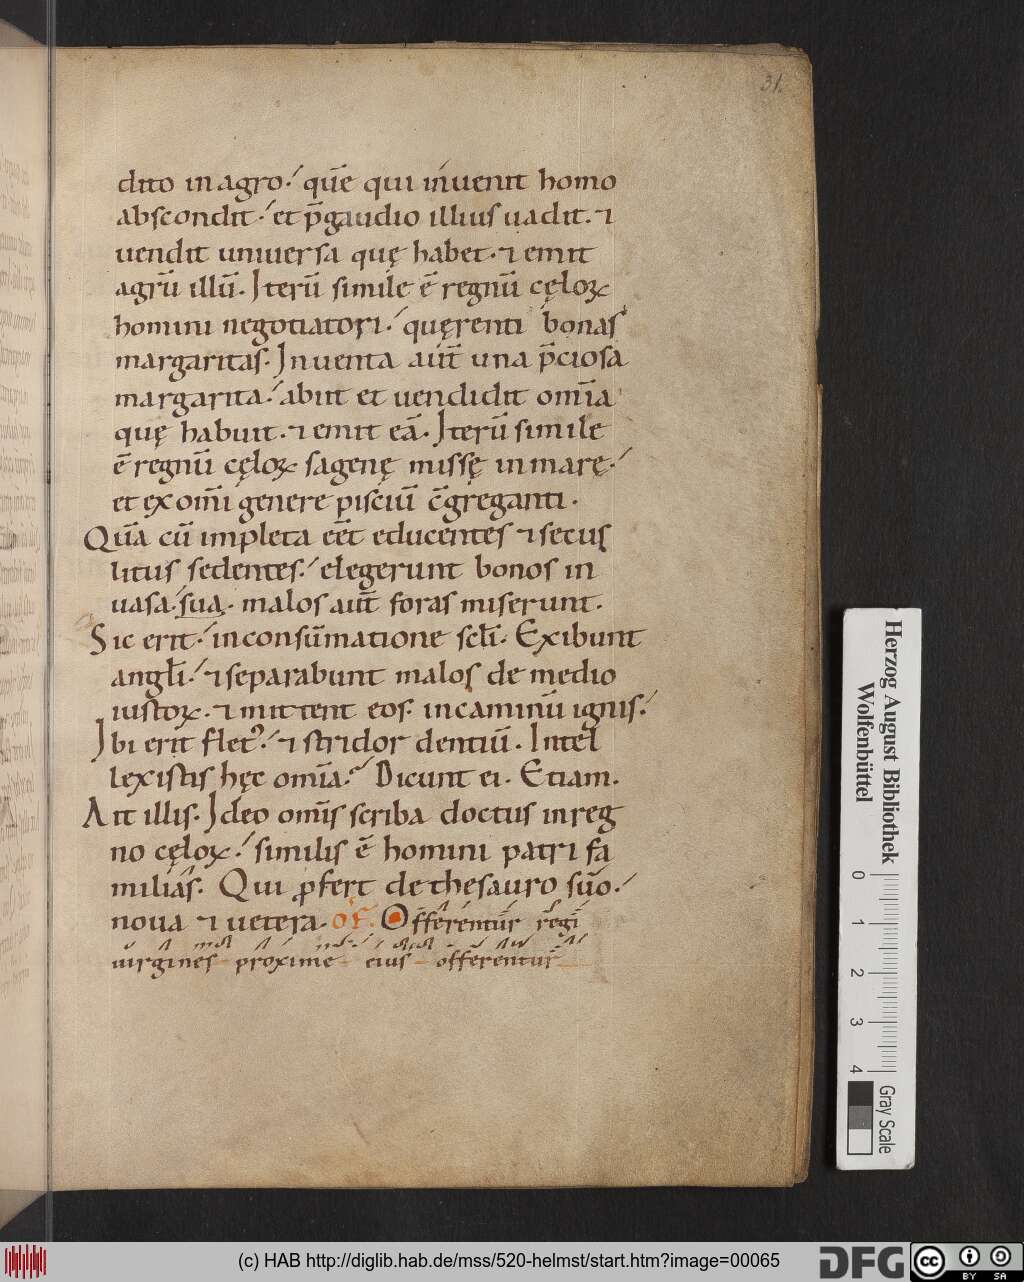 31.
dito in agro. quē qui inuenit homo
abscondit. et p̄ gaudio illius uadit. ⁊
uendit uniuersa quę habet. ⁊ emit
agrū illū. Iterū simile ē regnū cęloꝝ
homini negotiatori. quęrenti bonas
margaritas. Inuenta aūt una p̄ciosa
margarita. abiit et uendidit om̄ia
quę habuit. ⁊ emit eā. Iterū simile
ē regnū cęloꝝ sagenę missę in marę.
et ex om̄i genere pisciū c̄greganti.
Quā cū impleta eēt educentes ⁊ secus
litus sedentes. elegerunt bonos in
uasa. sua. malos aūt foras miserunt.
Sic erit. in consūmatione scłi. Exibunt
angłi. ⁊ separabunt malos de medio
iustoꝝ. ⁊ mittent eos. in caminū ignis.
Ibi erit fletꝰ. ⁊ stridor dentiū. Intel
lexistis hęc om̄ia. Dicunt ei. Etiam.
Ait illis. Ideo om̄is scriba doctus in reg
no cęloꝝ. similis ē homini patri fa
milias. Qui ꝓfert de thesauro suo.
noua ⁊ uetera. of. Offerentur regi
uirgines proxime eius offerentur
Herzog August Bibliothek
Wolfenbüttel
0 1 2 3 4
Gray Scale
(c) HAB http://diglib.hab.de/mss/520-helmst/start.htm?image=00065
DFG
cc BY SA